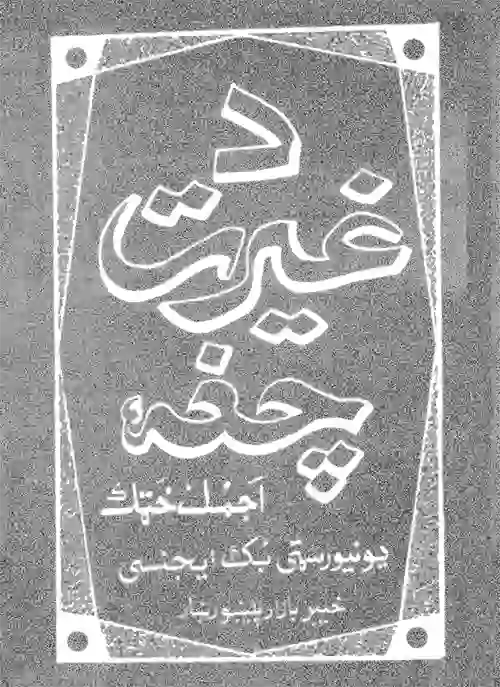 د
غیرت
چغه
اجمل خټک
یونیورسټی بک ایجنسی
خیبر بازار پېښور ښار